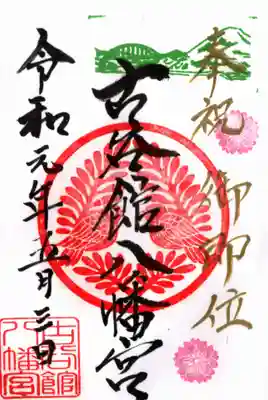 奉祝 御即位
古谷館八幡宮
令和元年五月三日
古谷館
八幡宮